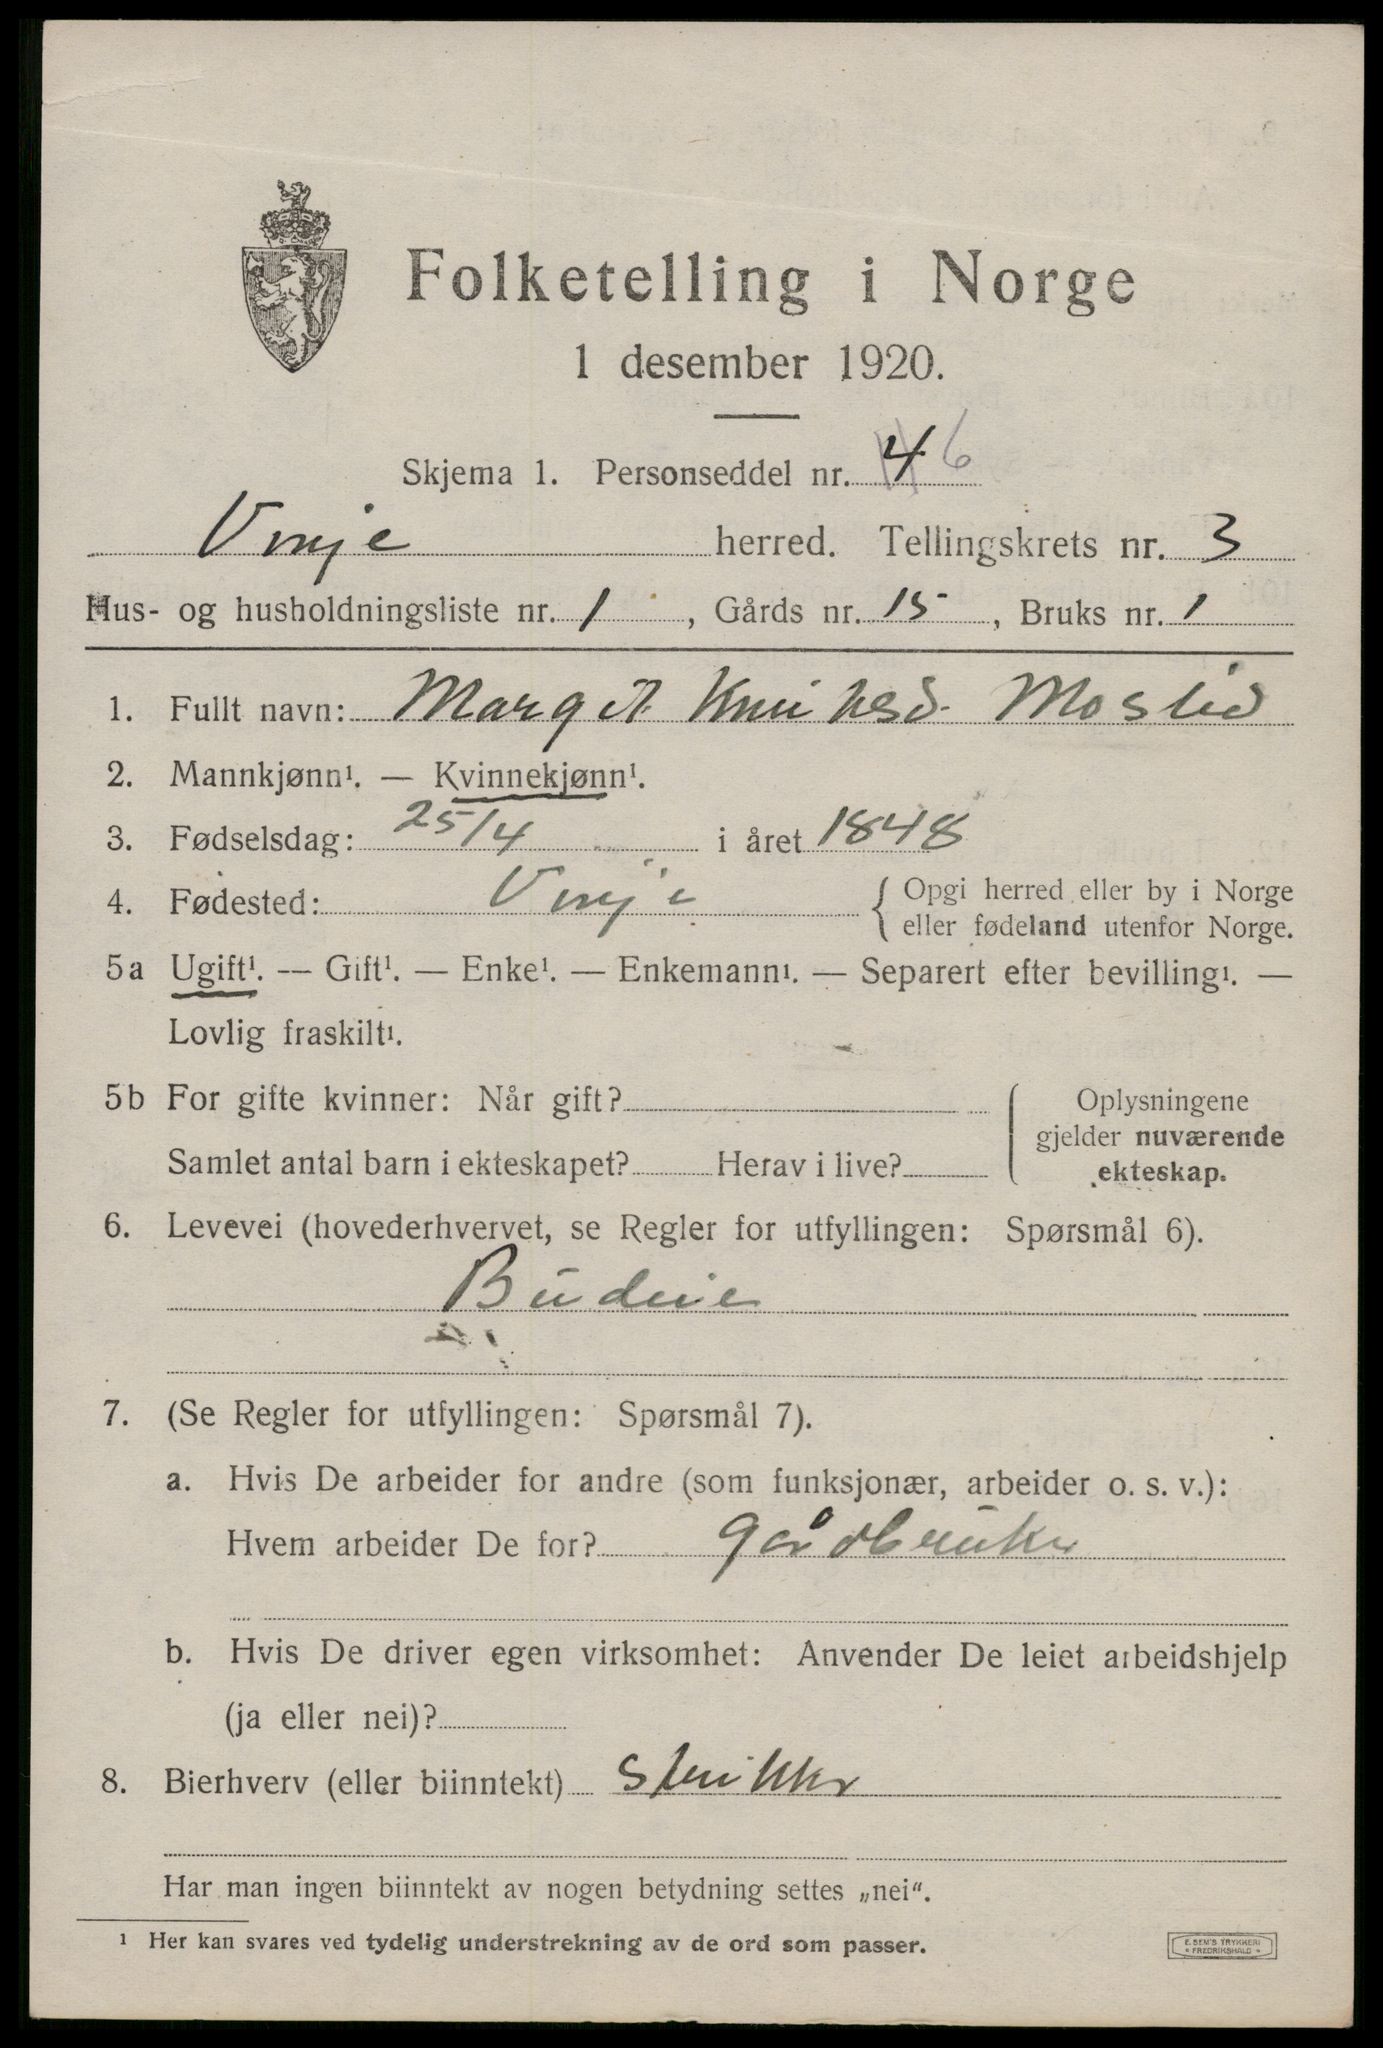 Folketelling i Norge
1 desember 1920.
Skjema 1. Personseddel nr. 4 6
Vinje herred. Tellingskrets nr. 3
Hus- og husholdningsliste nr. 1, Gårds nr. 15, Bruks nr. 1
1. Fullt navn: Margit Knutesd. Moslid
2. Mannkjønn¹. — Kvinnekjønn¹.
3. Fødselsdag: 25/4 i året 1848
4. Fødested: Vinje { Opgi herred eller by i Norge
eller fødeland utenfor Norge.
5a Ugift¹. — Gift¹. — Enke¹. — Enkemann¹. — Separert efter bevilling¹. —
Lovlig fraskilt¹.
5b For gifte kvinner: Når gift?
Samlet antal barn i ekteskapet? Herav i live?
Oplysningene
gjelder nuværende
ekteskap.
6. Levevei (hovederhvervet, se Regler for utfyllingen: Spørsmål 6).
Budeie
7. (Se Regler for utfyllingen: Spørsmål 7).
a. Hvis De arbeider for andre (som funksjonær, arbeider o. s. v.):
Hvem arbeider De for? gårdbruker
b. Hvis De driver egen virksomhet: Anvender De leiet arbeidshjelp
(ja eller nei)?
8. Bierhverv (eller biinntekt) Strikker
Har man ingen biinntekt av nogen betydning settes „nei“.
¹ Her kan svares ved tydelig understrekning av de ord som passer.
E. SEM'S TRYKKERI
FREDRIKSHALD